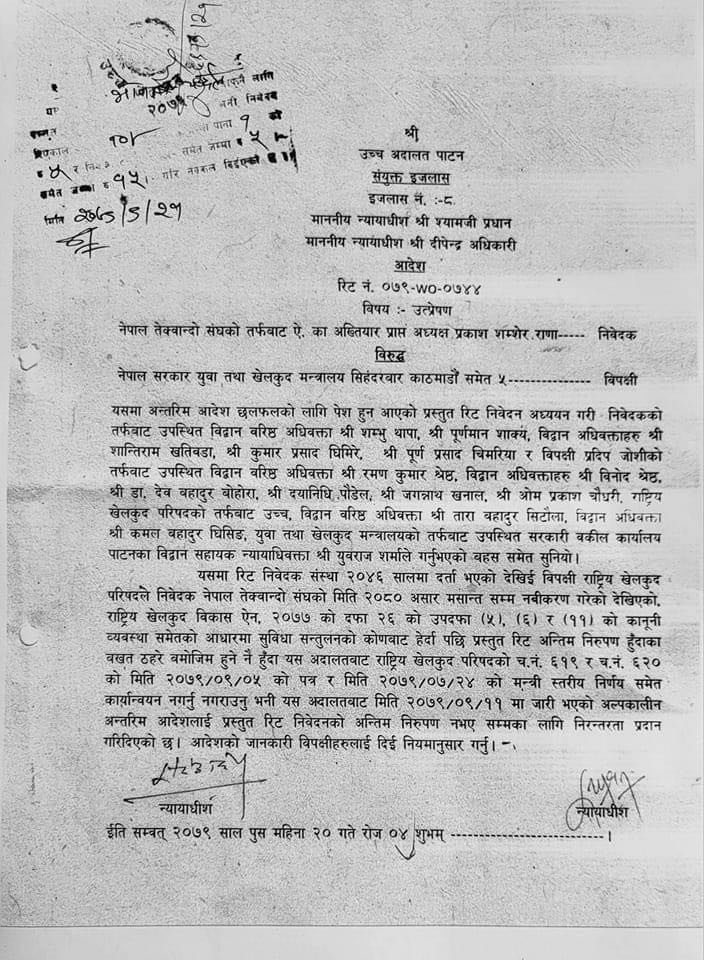 लागि
२०७९
निवेदक
पाना १ को
समेत जम्मा रु ५
रु ५ र
समेत जम्मा रु १५।- गरि नक्कल दिईएको छ।
मिति
श्री
उच्च अदालत पाटन
संयुक्त इजलास
इजलास नं. :-८
माननीय न्यायाधीश श्री श्यामजी प्रधान
माननीय न्यायाधीश श्री दीपेन्द्र अधिकारी
आदेश
रिट नं. ०७९-WO-०७४४
विषय :- उत्प्रेषण
नेपाल तेक्वान्दो संघको तर्फबाट ऐ. का अख्तियार प्राप्त अध्यक्ष प्रकाश शम्शेर राणा----- निवेदक
विरुद्ध
नेपाल सरकार युवा तथा खेलकुद मन्त्रालय सिहंदरवार काठमाडौं समेत ५--------------- विपक्षी
यसमा अन्तरिम आदेश छलफलको लागि पेश हुन आएको प्रस्तुत रिट निवेदन अध्ययन गरी निवेदकको
तर्फबाट उपस्थित विद्वान वरिष्ठ अधिवक्ता श्री शम्भु थापा, श्री पूर्णमान शाक्य, विद्वान अधिवक्ताहरु श्री
शान्तिराम खतिवडा, श्री कुमार प्रसाद घिमिरे, श्री पूर्ण प्रसाद चिमरिया र विपक्षी प्रदिप जोशीको
तर्फबाट उपस्थित विद्वान वरिष्ठ अधिवक्ता श्री रमण कुमार श्रेष्ठ, विद्वान अधिवक्ताहरु श्री विनोद श्रेष्ठ,
श्री डा. देव बहादुर बोहोरा, श्री दयानिधि पौडेल, श्री जगन्नाथ खनाल, श्री ओम प्रकाश चौधरी, राष्ट्रिय
खेलकुद परिषदको तर्फबाट उच्च, विद्वान वरिष्ठ अधिवक्ता श्री तारा बहादुर सिटौला, विद्वान अधिवक्ता
श्री कमल बहादुर घिसिङ, युवा तथा खेलकुद मन्त्रालयको तर्फबाट उपस्थित सरकारी वकील कार्यालय
पाटनका विद्वान सहायक न्यायाधिवक्ता श्री युवराज शर्माले गर्नुभएको बहस समेत सुनियो।
यसमा रिट निवेदक संस्था २०४६ सालमा दर्ता भएको देखिई विपक्षी राष्ट्रिय खेलकुद
परिषदले निवेदक नेपाल तेक्वान्दो संघको मिति २०८० असार मसान्त सम्म नबीकरण गरेको देखिएको,
राष्ट्रिय खेलकुद विकास ऐन, २०७७ को दफा २६ को उपदफा (५), (६) र (११) को कानूनी
व्यवस्था समेतको आधारमा सुविधा सन्तुलनको कोणबाट हेर्दा पछि प्रस्तुत रिट अन्तिम निरुपण हुँदाका
बखत ठहरे बमोजिम हुने नै हुँदा यस अदालतबाट राष्ट्रिय खेलकुद परिषदको च.नं. ६१९ र च.नं. ६२०
को मिति २०७९/०९/०५ को पत्र र मिति २०७९/०७/२४ को मन्त्री स्तरीय निर्णय समेत
कार्यान्वयन नगर्नु नगराउनु भनी यस अदालतबाट मिति २०७९/०९/११ मा जारी भएको अल्पकालीन
अन्तरिम आदेशलाई प्रस्तुत रिट निवेदनको अन्तिम निरुपण नभए सम्मका लागि निरन्तरता प्रदान
गरिदिएको छ। आदेशको जानकारी विपक्षीहरुलाई दिई नियमानुसार गर्नु। -
न्यायाधीश
न्यायाधीश
ईति सम्वत् २०७९ साल पुस महिना २० गते रोज ०४ शुभम् ------------------।